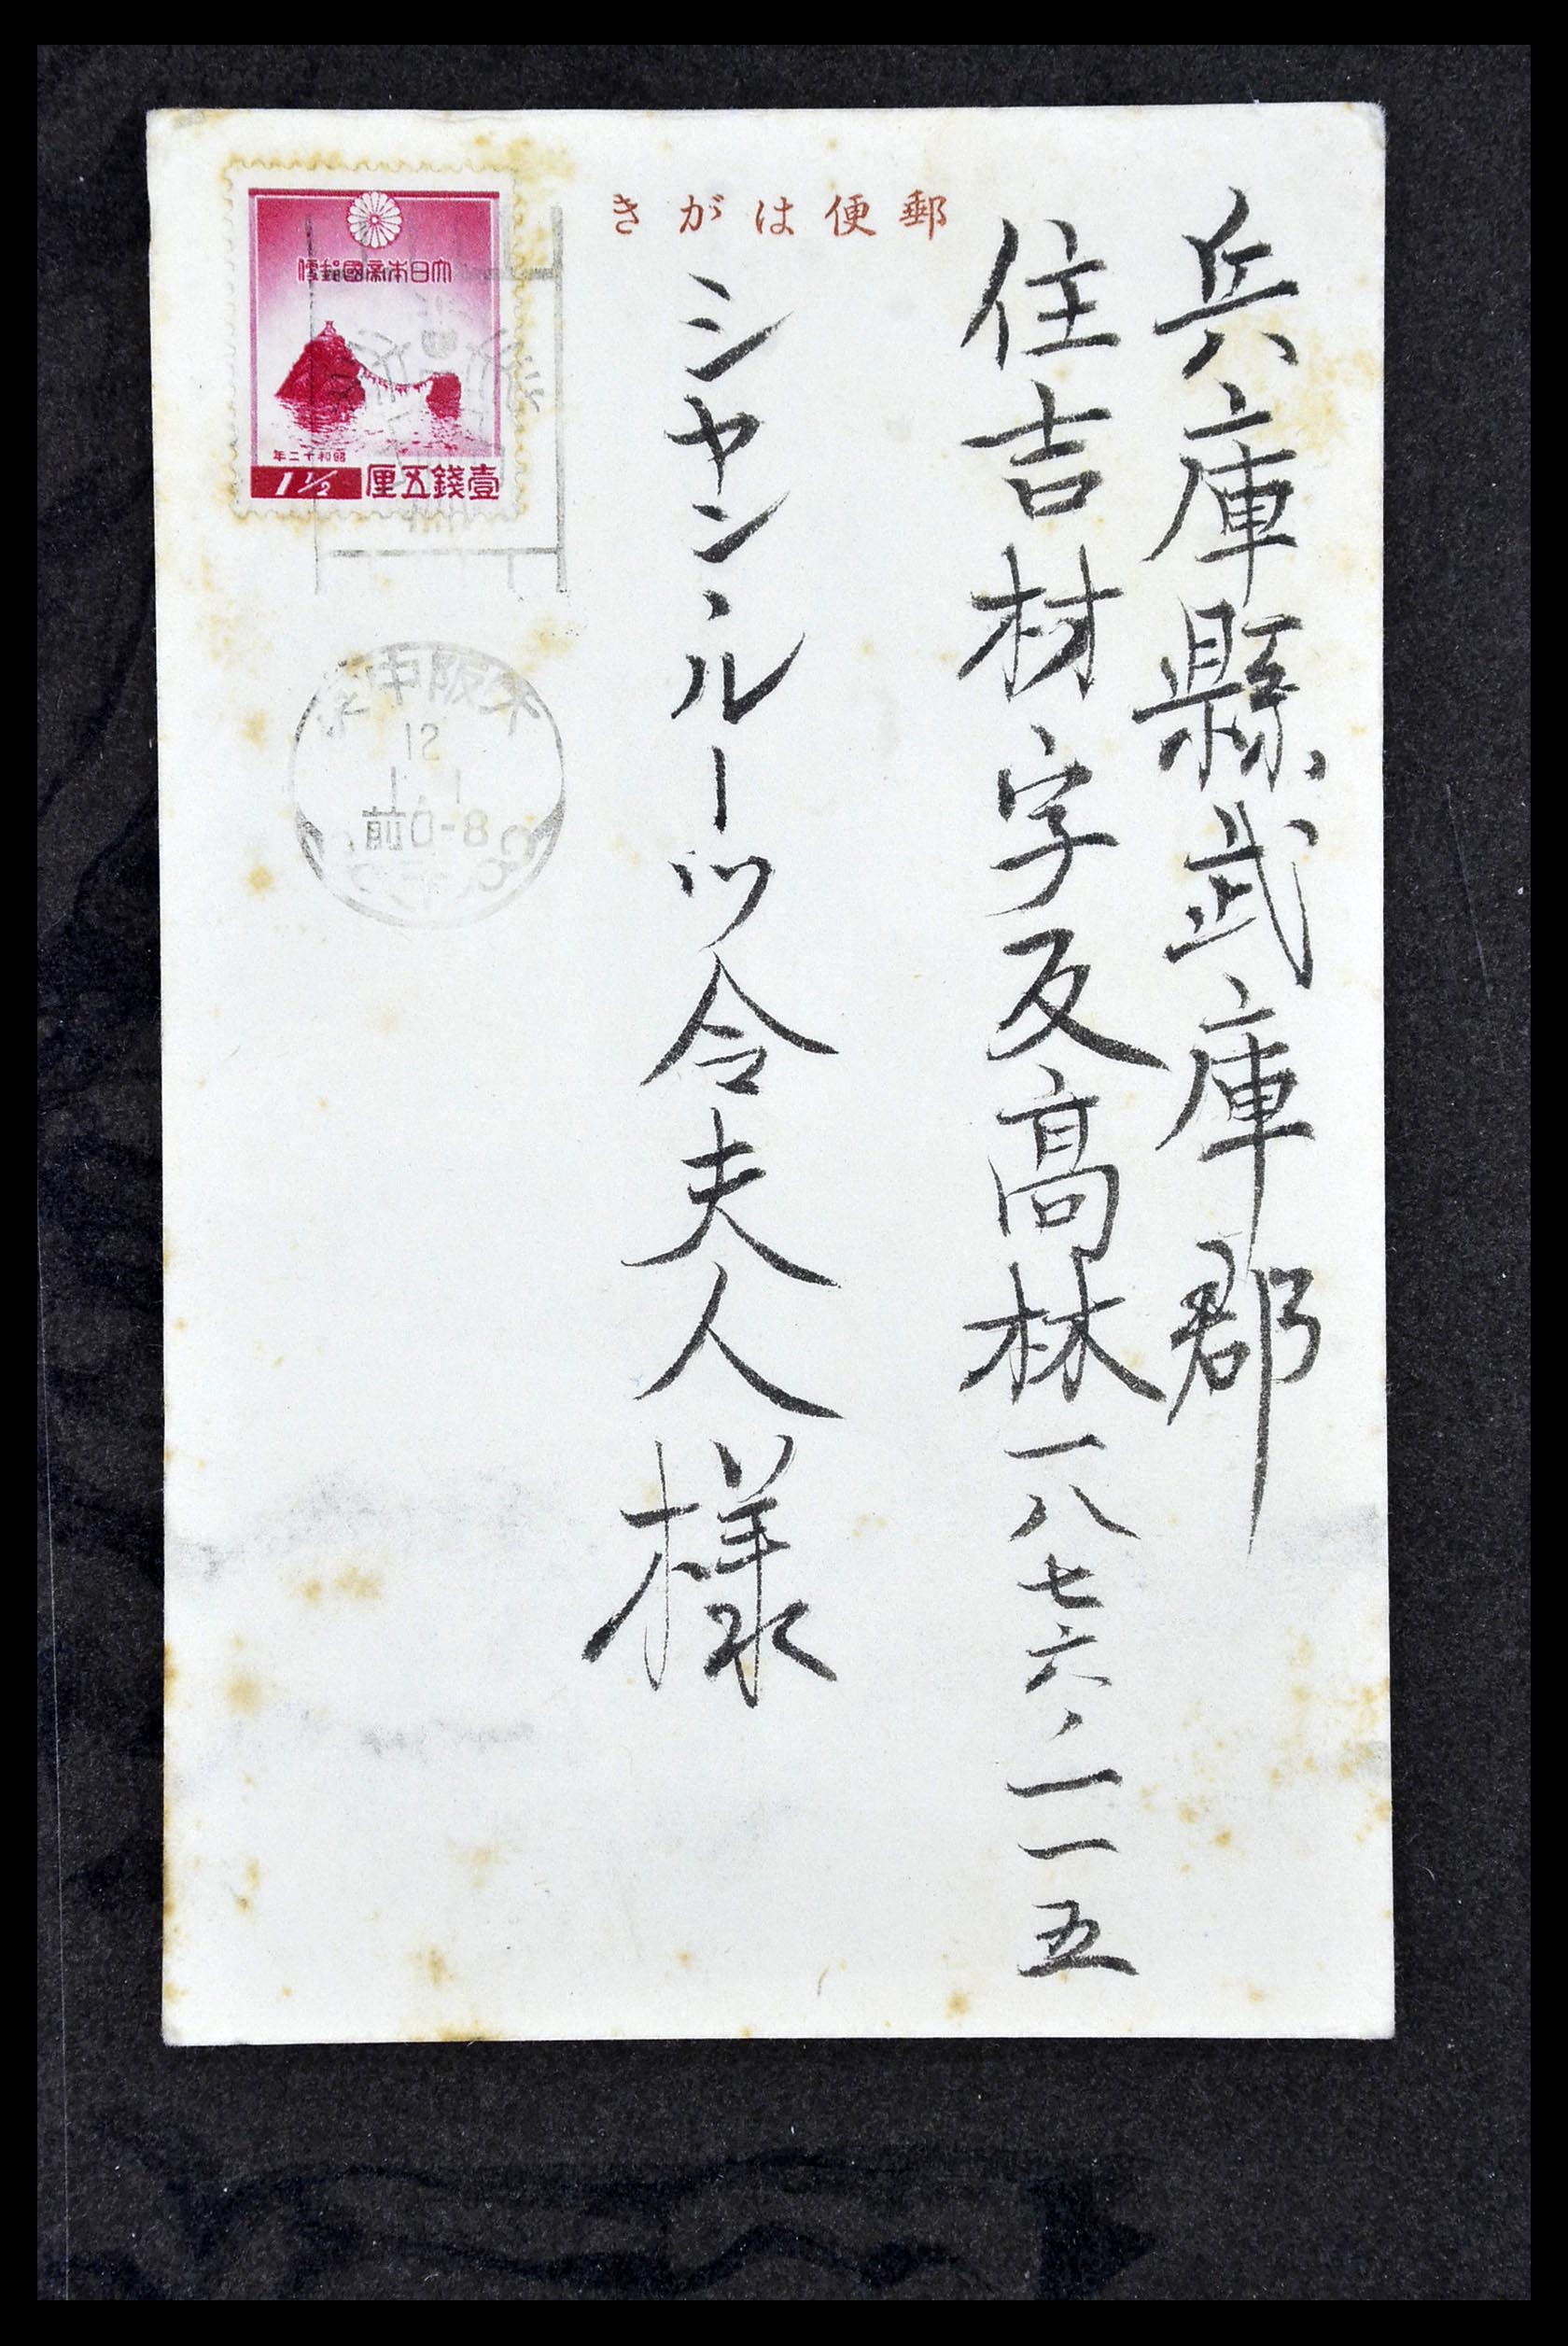 郵便はがき
兵庫縣武庫郡
住吉村字反高林一八七六ノ一一五
シヤン、ルーツ令夫人様
大日本帝國郵便
昭和十二年
1½ 壹錢五厘
大阪中央
12
1.1
前0-8